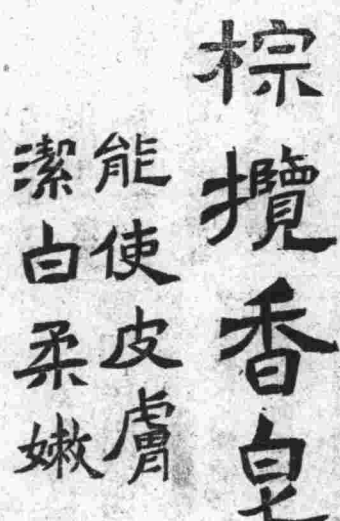 棕攬香皂
能使皮膚
潔白柔嫩